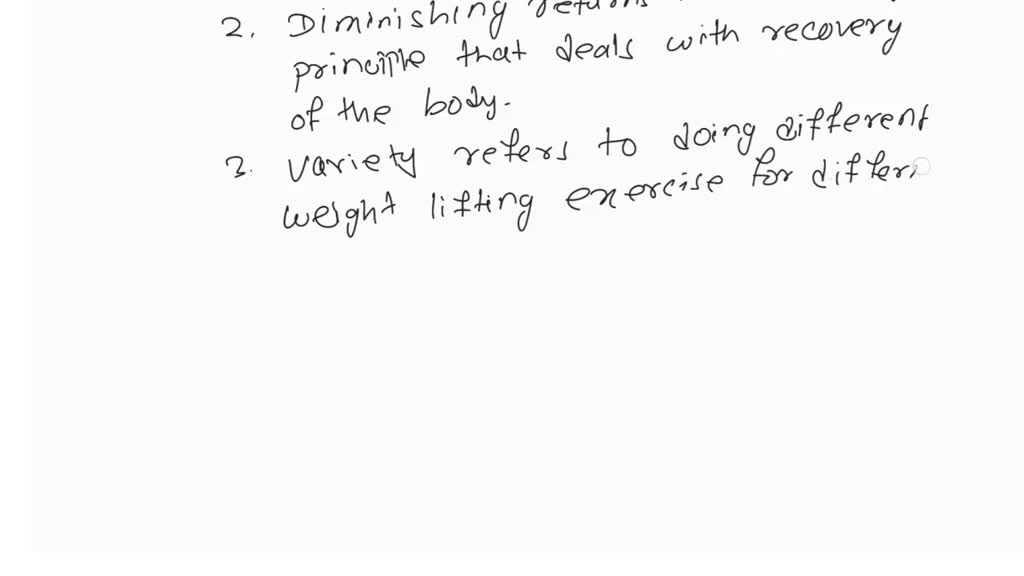 2. Diminishing returns
principle that deals with recovery
of the body.
3. Variety refers to doing different
weight lifting exercise for differ